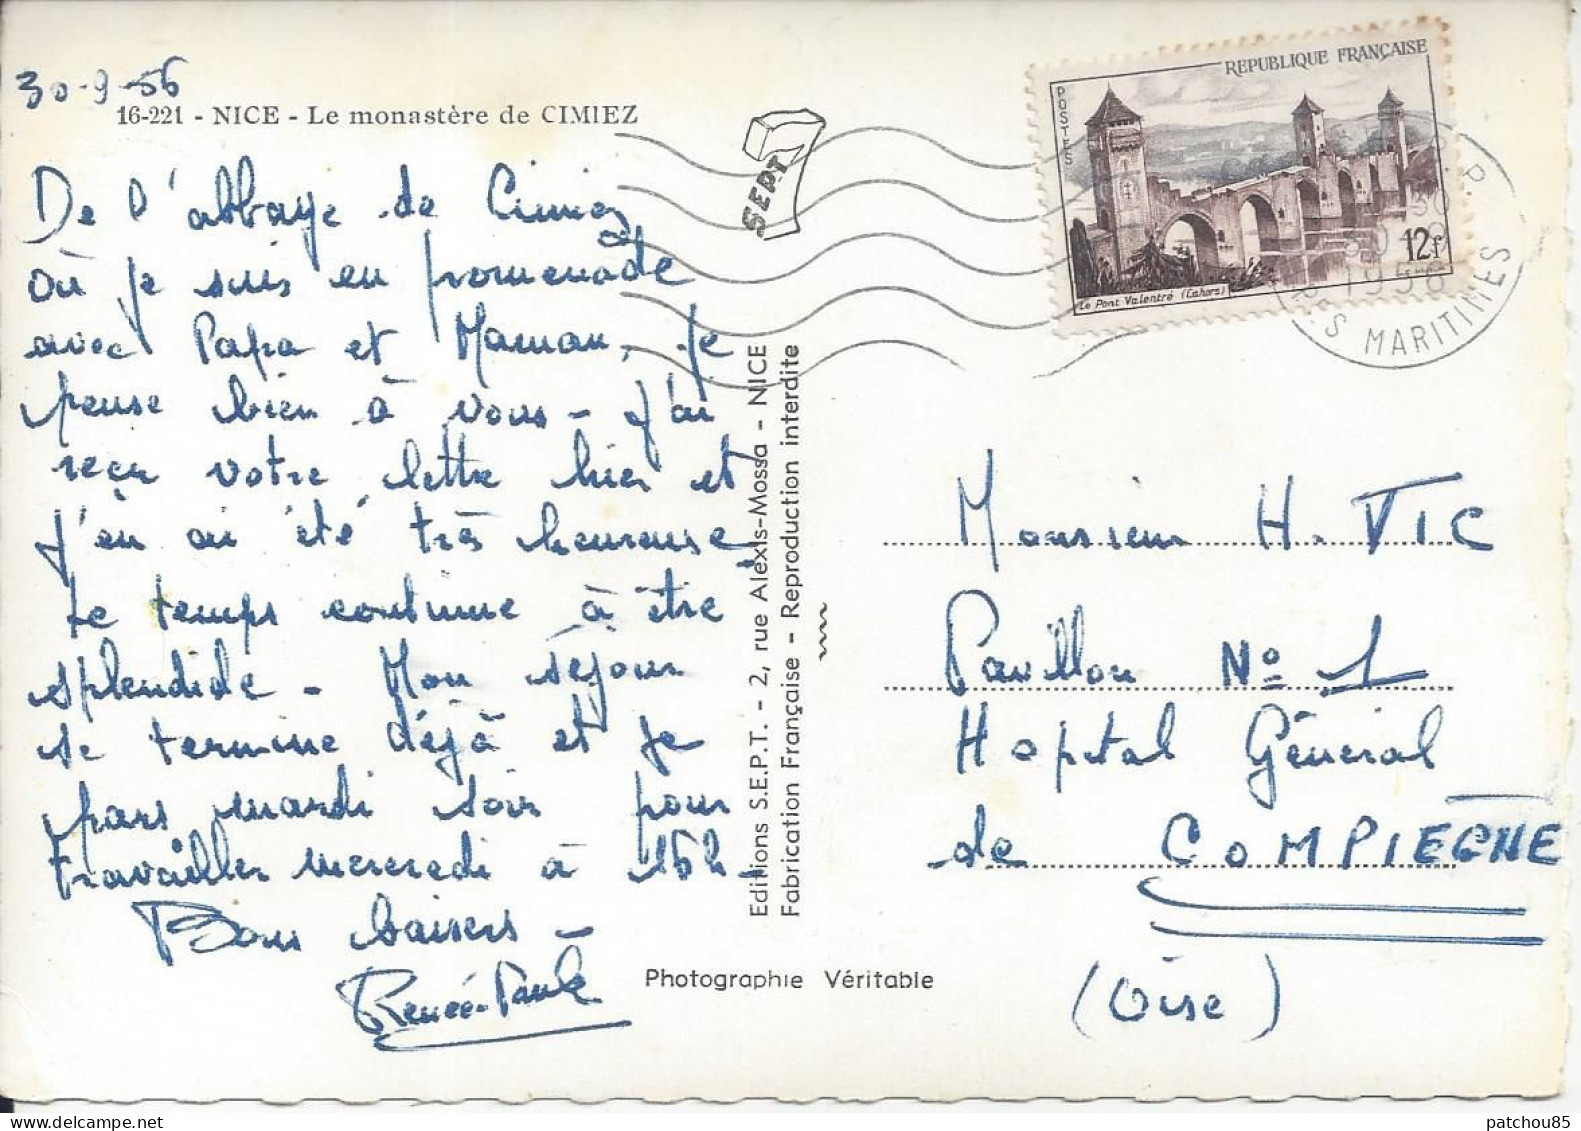 30-9-56
16-221 - NICE - Le monastère de CIMIEZ
De l'abbaye de Cimiez
où je suis en promenade
avec Papa et Maman, je
pense bien à vous - J'ai
reçu votre lettre hier et
j'en ai été très heureuse.
Le temps continue à être
splendide - Mon séjour
se termine déjà et je
pars mardi soir pour
travailler mercredi à 15h -
Bons baisers -
Renée-Paule
SEPT
Editions S.E.P.T. - 2, rue Alexis-Mossa - NICE
Fabrication Française - Reproduction interdite
Photographie Véritable
REPUBLIQUE FRANÇAISE
POSTES
12f
Le Pont Valentré (Cahors)
1956
MARITIMES
Monsieur H. VIC
Pavillon No 1
Hopital Général
de COMPIEGNE
(Oise)
patchou85